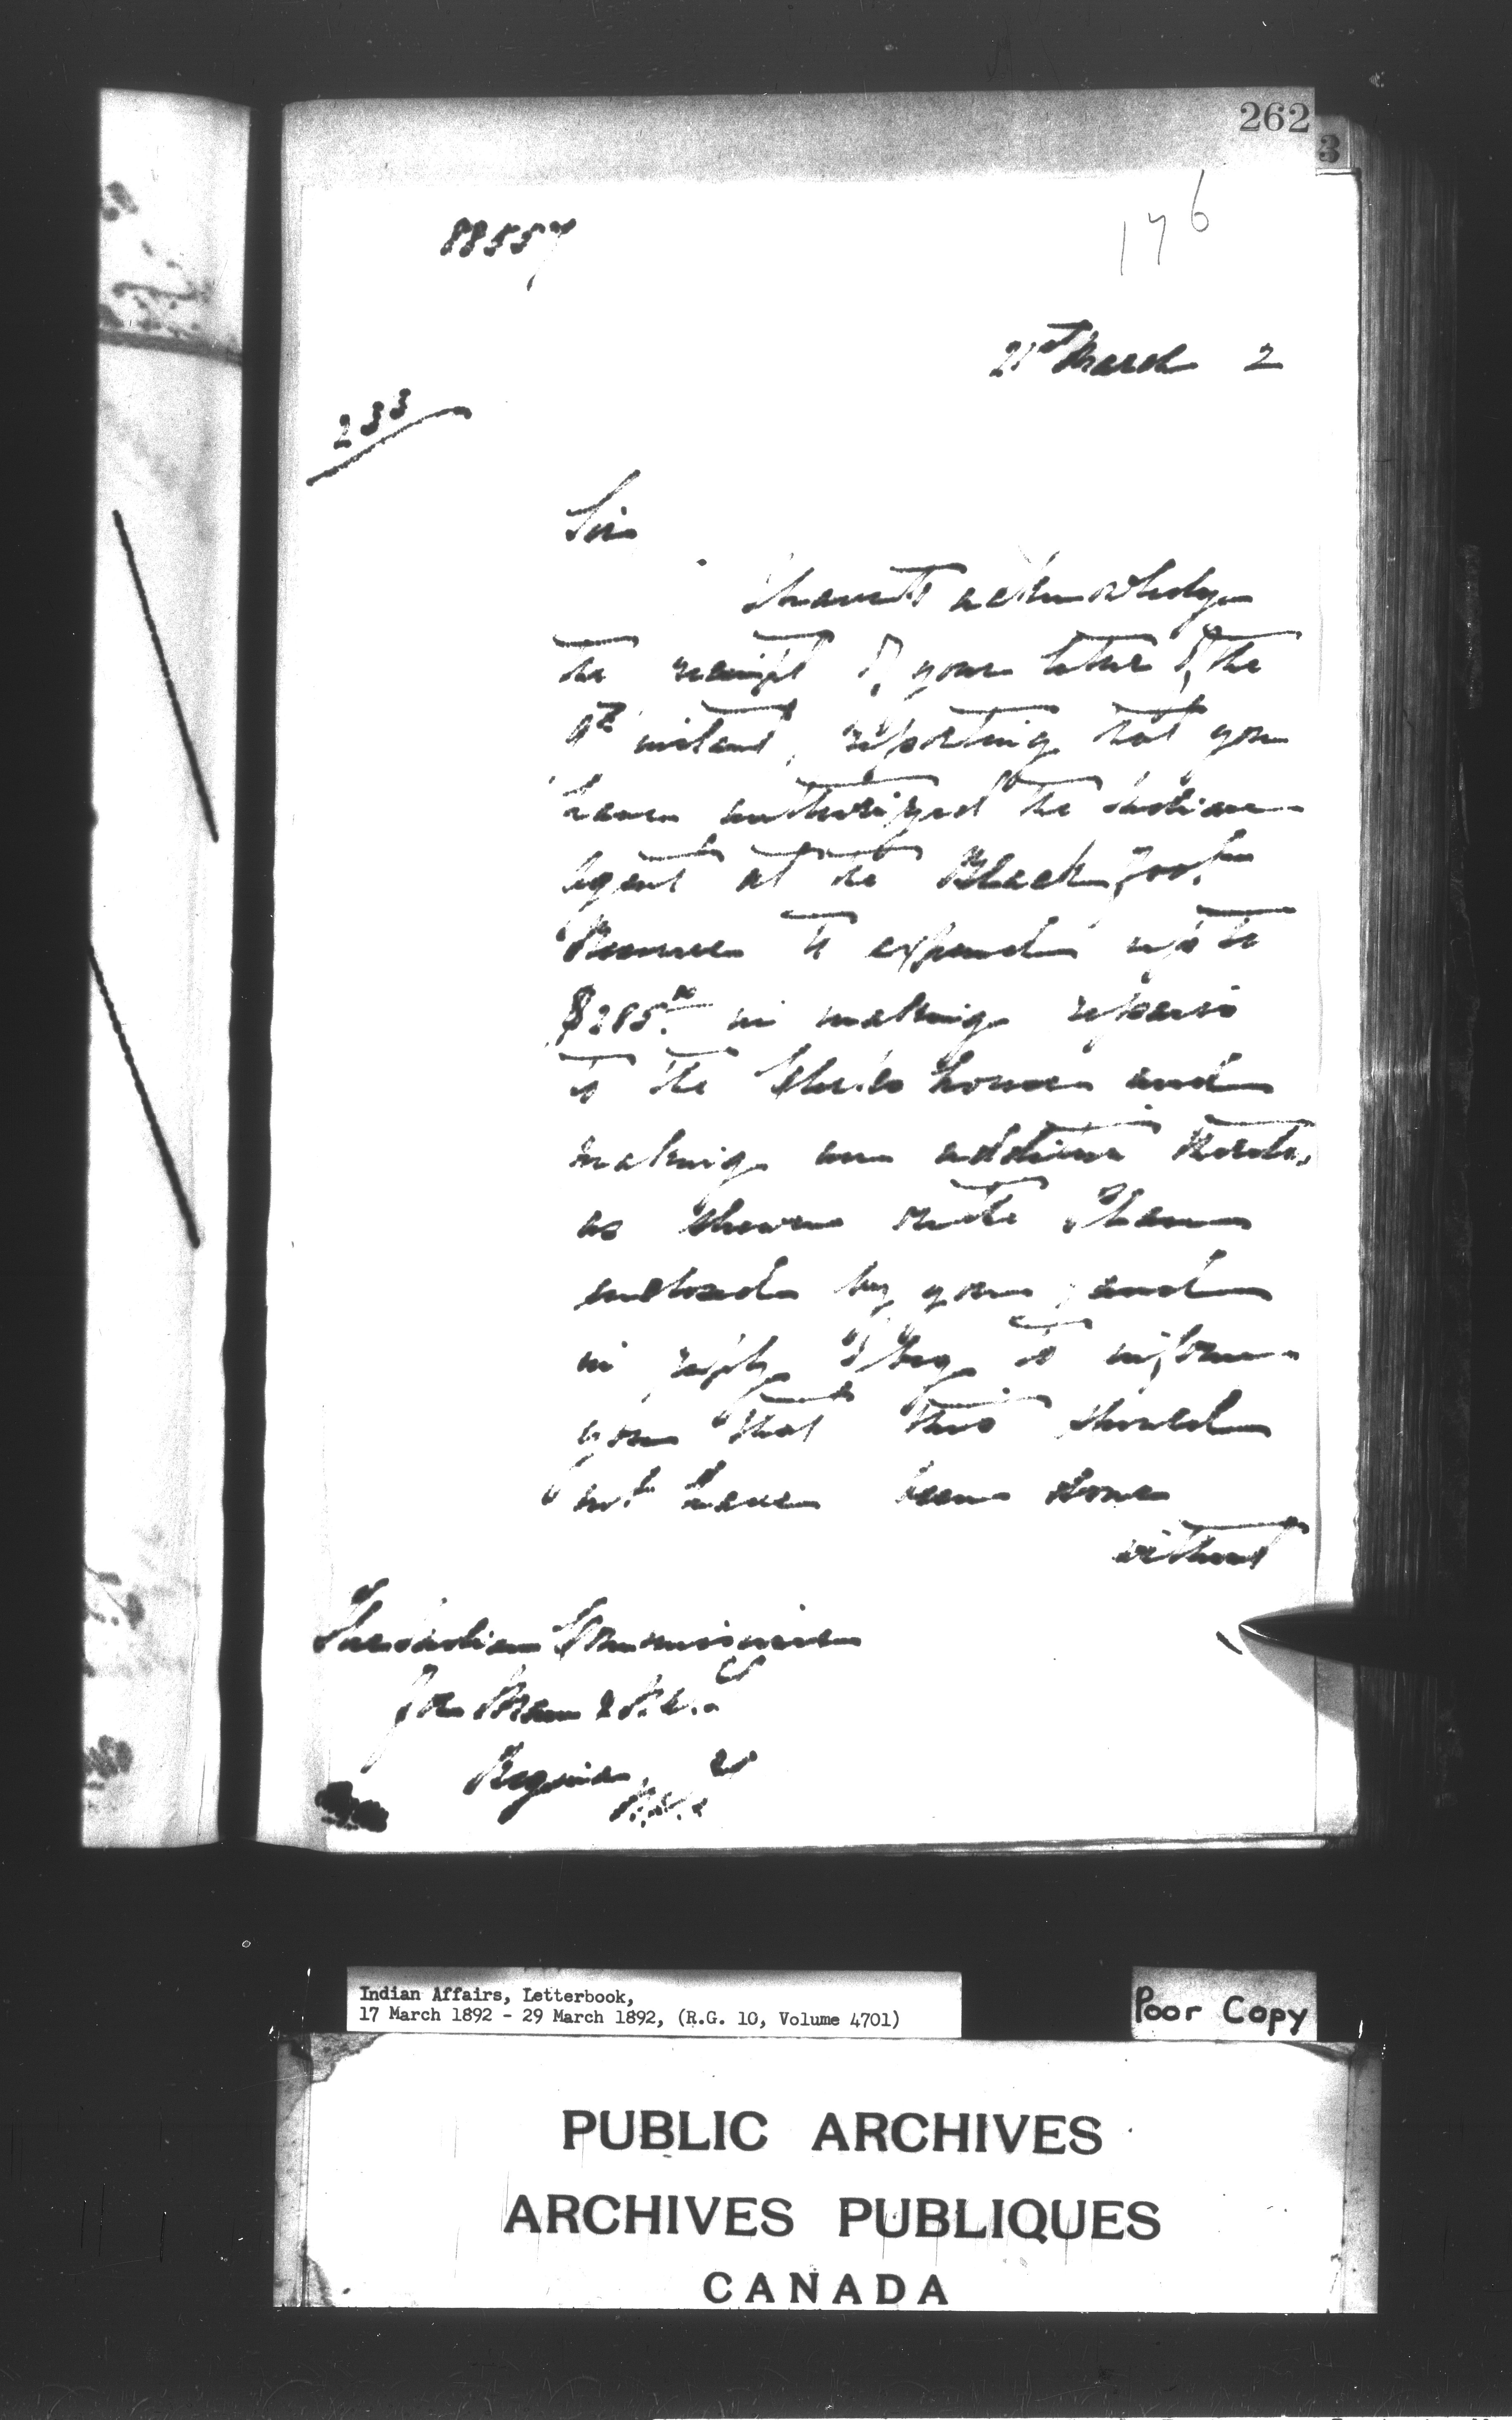 262
3
88557
176
21st March 2
233
Sir
I have to acknowledge
the receipt of your letter of the
instant, reporting that you
have authorized the Indian
Agent at the Blackfoot
Reserve to expend up to
in making repairs
to the Clerk's house and
making an addition thereto,
as shown on the Plan
enclosed by you, and
in reply I beg to inform
you that this should
not have been done
without
The Indian Commissioner
for Man & N.W.T.
Regina
Indian Affairs, Letterbook,
17 March 1892 - 29 March 1892, (R.G. 10, Volume 4701)
Poor Copy
PUBLIC ARCHIVES
ARCHIVES PUBLIQUES
CANADA